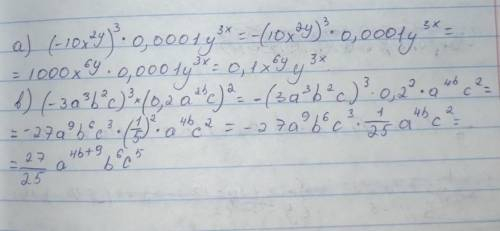 а) (-10x^{2y})^3 · 0,0001y^{3x} = -(10x^{2y})^3 · 0,0001y^{3x} =
= 1000x^{6y} · 0,0001y^{3x} = 0,1x^{6y} y^{3x}
в) (-3a^3b^2c)^3 × (0,2a^{2b}c)^2 = -(3a^3b^2c)^3 · 0,2^2 · a^{4b} c^2 =
= -27a^9b^6c^3 · (1/5)^2 · a^{4b} c^2 = -27a^9b^6c^3 · 1/25 a^{4b} c^2 =
= 27/25 a^{4b+9} b^6c^5